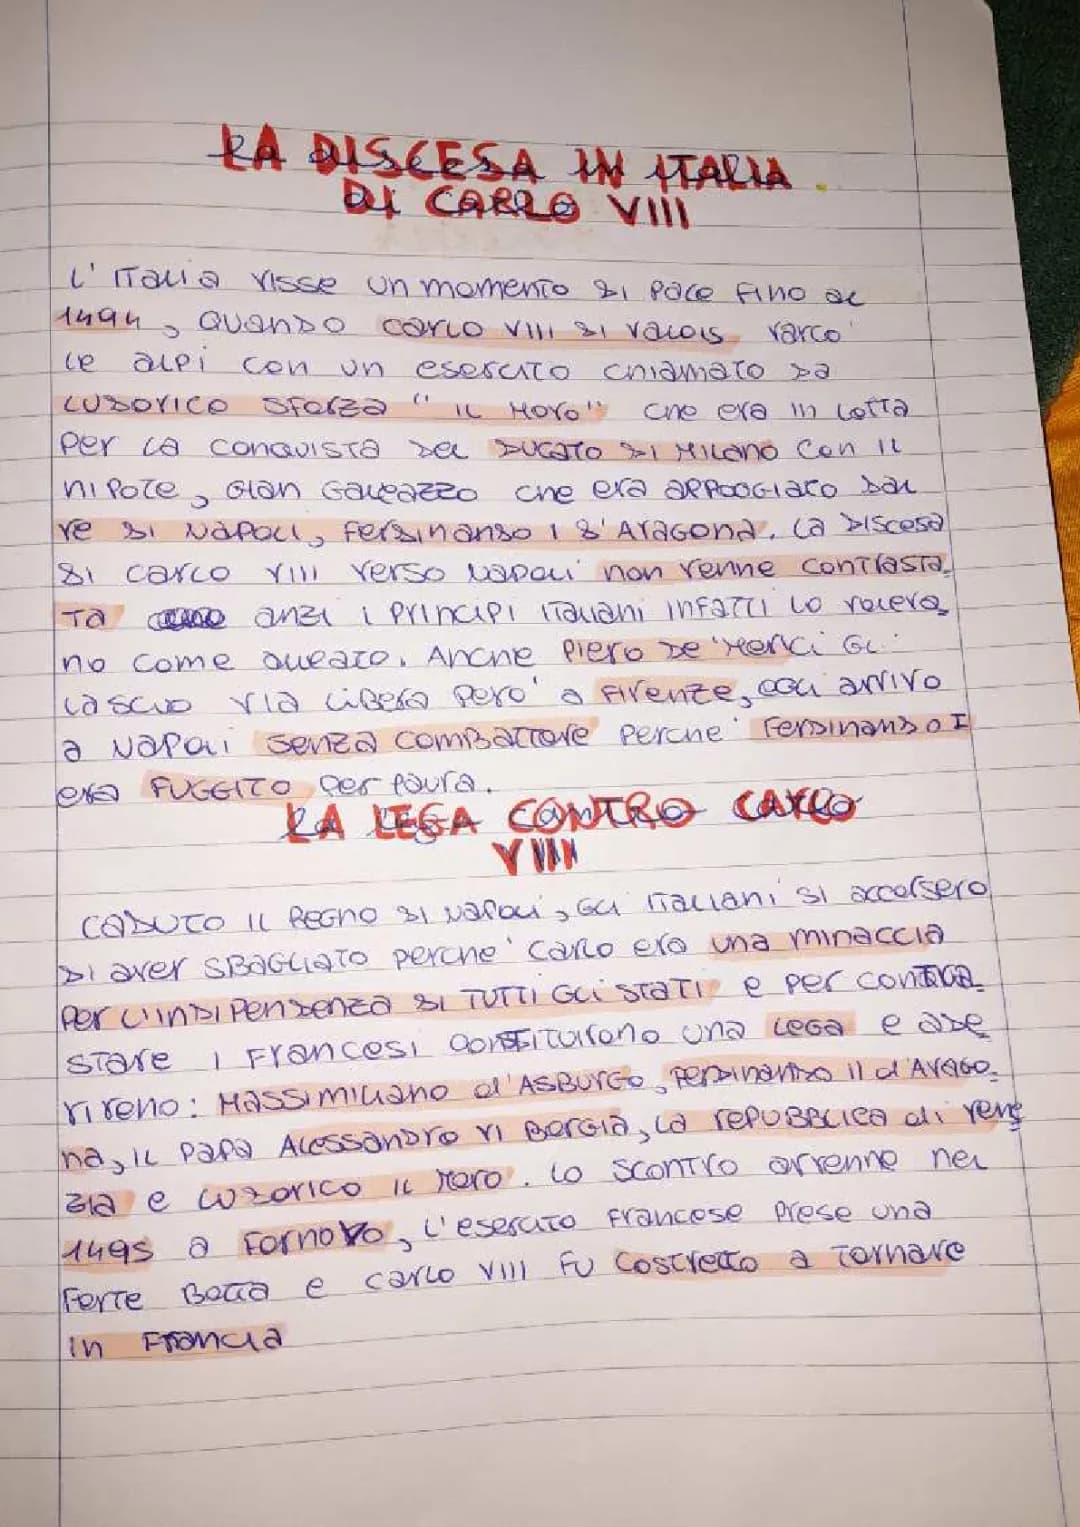 LA DISCESA IN ITALIA
DI CARLO VIII
L'ITALIA VISSE un momento di pace fino al
1494, QUANDO CARLO VIII di Valois varcò
le alpi con un esercito chiamato da
LUDOVICO SFORZA "IL MORO" che era in lotta
per la conquista del DUCATO di MILANO con il
nipote, Gian Galeazzo che era appoggiato dal
re di Napoli, Ferdinando I d'Aragona. La discesa
di Carlo VIII verso Napoli non venne contrasta-
ta anzi i principi italiani infatti lo voleva
no come alleato. Anche Piero De'Medici gli
lasciò via libera però a Firenze, così arrivò
a Napoli senza combattere perchè Ferdinando I
era FUGGITO per paura.
LA LEGA CONTRO CARLO
VIII
CADUTO IL REGNO di Napoli, gli italiani si accorsero
di aver SBAGLIATO perchè Carlo era una minaccia
per l'indipendenza di TUTTI GLI STATI e per contra
stare i Francesi costituirono una LEGA e ade
rirono: MASSIMILIANO d'ASBURGO, Ferdinando II d'Arago-
na, il Papa ALESSANDRO VI Borgia, la repubblica di Vene
zia e LUDOVICO il Moro. Lo scontro avvenne nel
1495 a Fornovo, l'esercito Francese prese una
forte botta e Carlo VIII fu costretto a tornare
in Francia